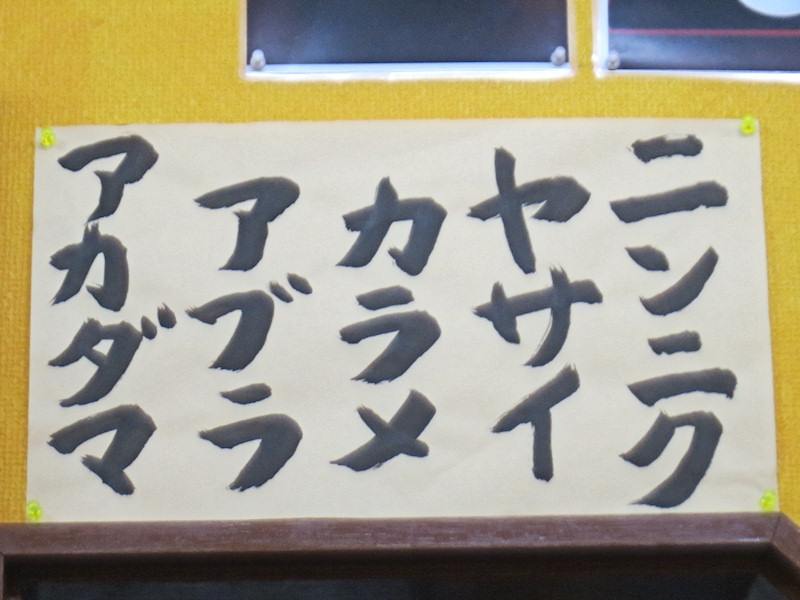 ニンニク
ヤサイ
カラメ
アブラ
アカダマ